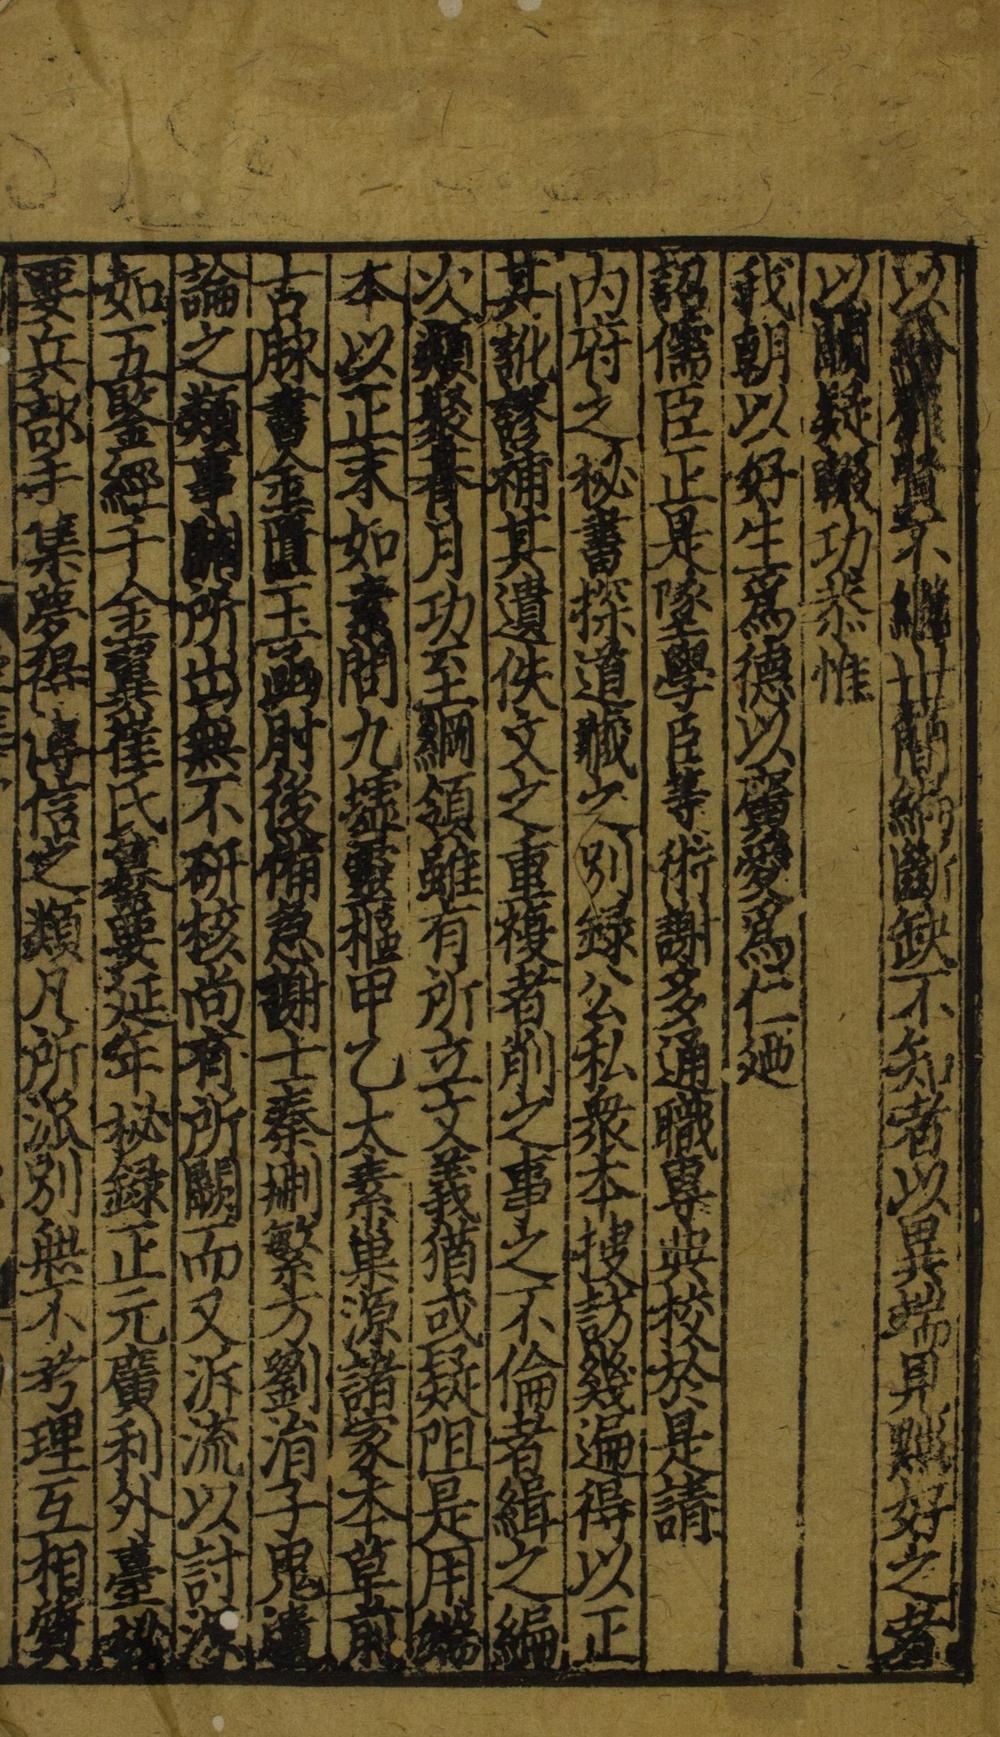 以紛外賢不繼世簡編斷缺不知者以異端見黜好之者
以闕疑輟功恭惟
我朝以好生爲德以廣愛爲仁廼
詔儒臣正是墜學臣等術謝多通職專典校於是請
内府之秘書探道藏之別録公私衆本搜訪幾遍得以正
其訛謬補其遺佚文之重複者削之事之不倫者緝之編
次類聚朞月功至綱領雖有所立文義猶或疑阻是用端
本以正末如素問九墟靈樞甲乙太素巢源諸家本草前
古脉書金匱玉函肘後備急謝士秦刪繁方劉涓子鬼遺
論之類事關所出無不研核尚有所闕而又泝流以討源
如五鑒經千金翼崔氏纂要延年秘録正元廣利外臺秘
要兵部手集夢得傳信之類凡所派別無不考理互相質